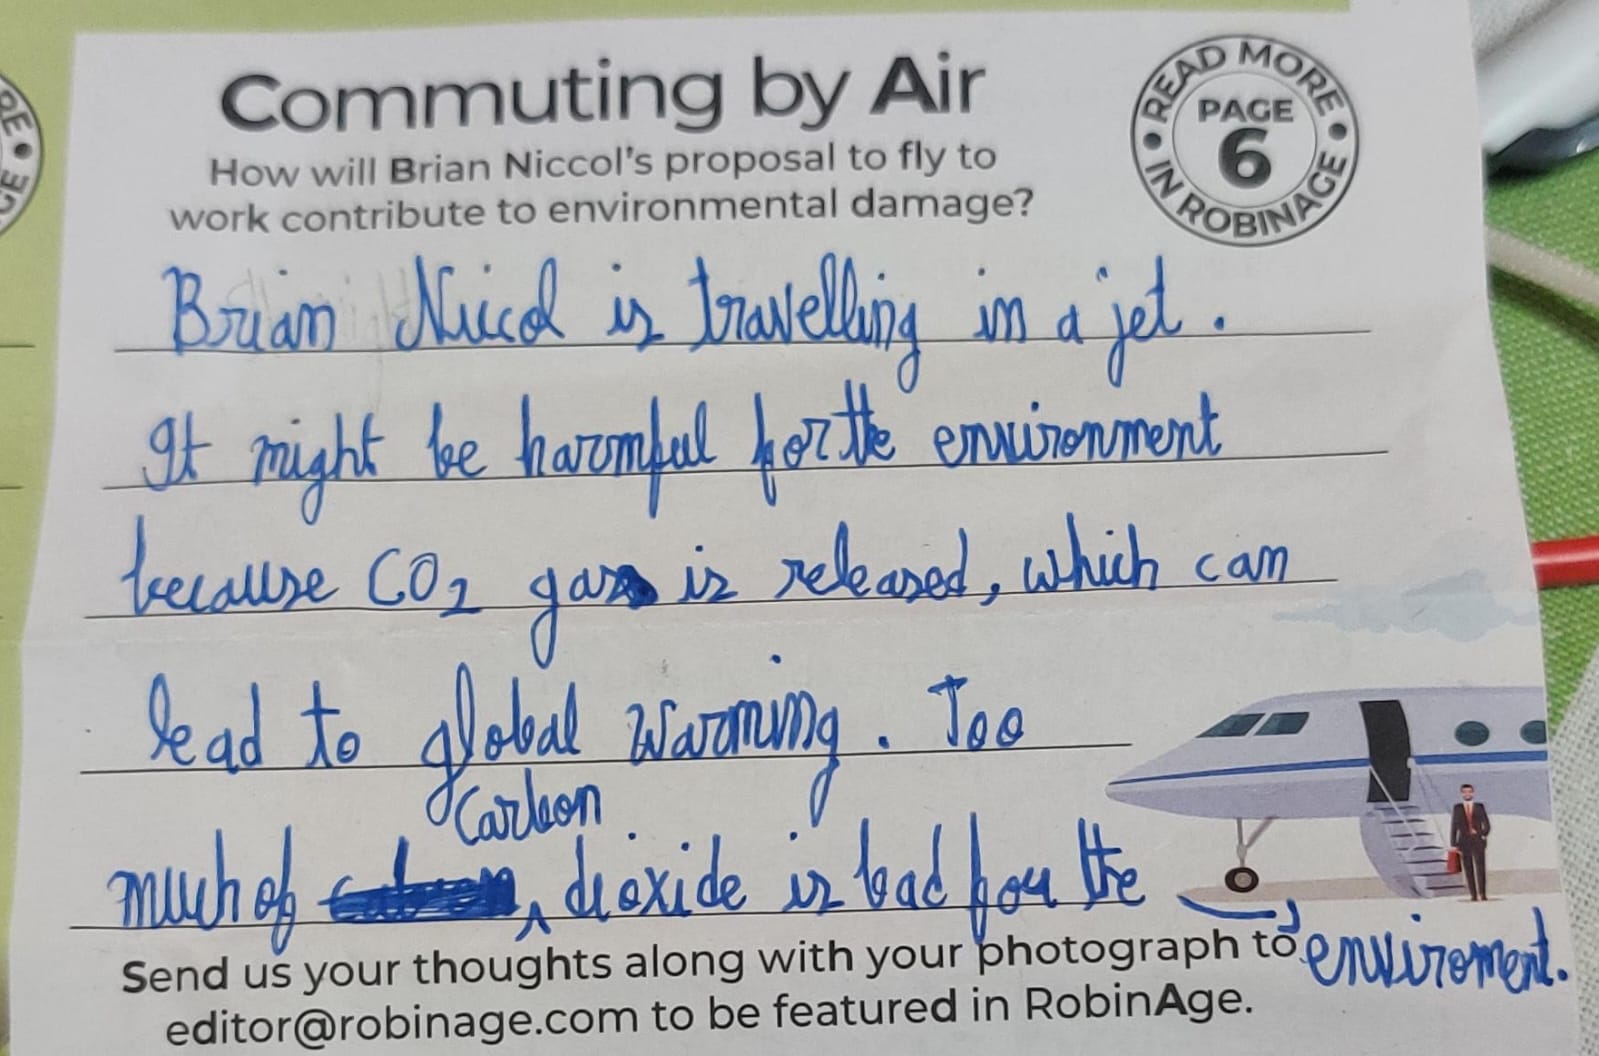 Commuting by Air
READ MORE
PAGE
6
IN ROBINAGE
How will Brian Niccol's proposal to fly to
work contribute to environmental damage?
Brian Niccol is travelling in a jet.
It might be harmful for the environment
because CO2 gas is released, which can
lead to global warming. Too
Carbon
much of dioxide is bad for the
enviroment.
Send us your thoughts along with your photograph to
editor@robinage.com to be featured in RobinAge.